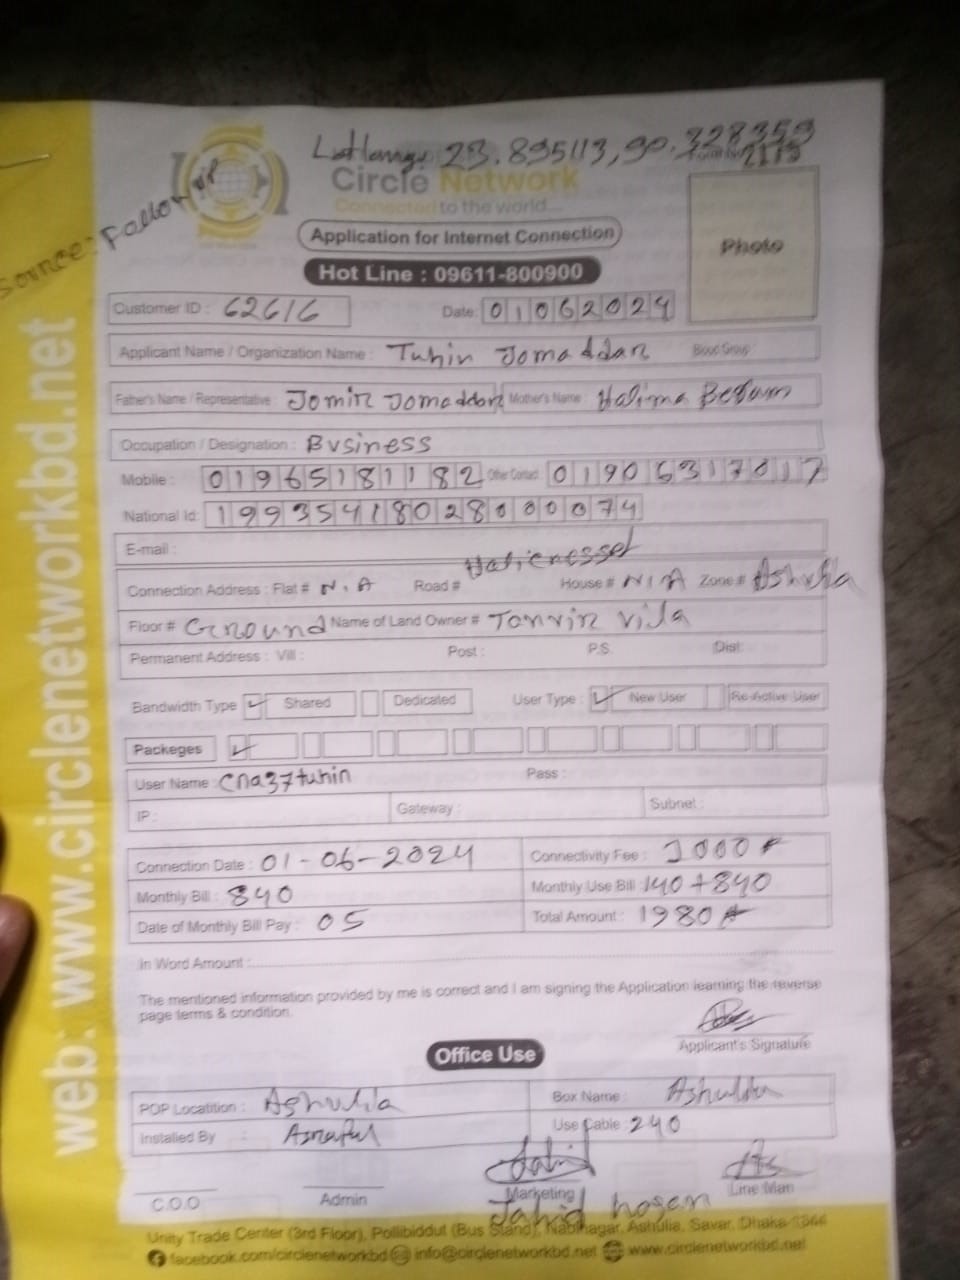 Source: Follow up
Lat Long: 23.895113, 90.328359
2115
Circle Network
Connected to the world...
Application for Internet Connection
Photo
Hot Line : 09611-800900
Customer ID : 62616 Date: 01062024
Applicant Name / Organization Name : Tuhin Jomaddar Blood Group :
Father's Name / Representative : Jomir Jomaddar Mother's Name : Halima Begum
Occupation / Designation : Business
Mobile : 01965181182 Other Contact : 01906317017
National Id: 19935418028000074
E-mail :
Connection Address : Flat # N.A Road # House # N/A Zone # Ashulia
Floor # Ground Name of Land Owner # Tanvir Vila
Permanent Address : Vill : Post : P.S. Dist:
Bandwidth Type Shared Dedicated User Type : New User Re-Active User
Packeges
User Name : cna37tuhin Pass :
IP : Gateway : Subnet :
Connection Date : 01-06-2024 Connectivity Fee : 1000
Monthly Bill : 840 Monthly Use Bill : 140+840
Date of Monthly Bill Pay : 05 Total Amount : 1980
In Word Amount :
The mentioned information provided by me is correct and I am signing the Application learning the reverse
page terms & condition.
Applicant's Signature
Office Use
POP Locatition : Ashulia Box Name : Ashulia
Installed By : Use Cable : 240
C.O.O Admin Marketing Line Man
Jahid hosen
Unity Trade Center (3rd Floor), Pollibiddut (Bus Stand), Nabinagar, Ashulia, Savar, Dhaka-1344
facebook.com/circlenetworkbd info@circlenetworkbd.net www.circlenetworkbd.net
web: www.circlenetworkbd.net